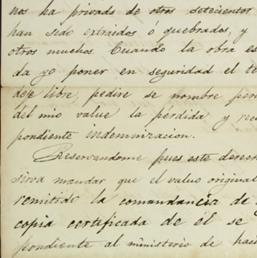 nos ha privado de otros setecientos
han sido extraidos ó quebrados, y
otros muchos. Cuando la obra es
da yo poner en seguridad el te
deje libre, pediré se nombre per
del mio value la pérdida y rec
pondiente indemnizacion.
Reservandome pues este derech
sirva mandar que el value original
remitido la comandancia de
copia certificada de él se
pondiente al ministerio de haci